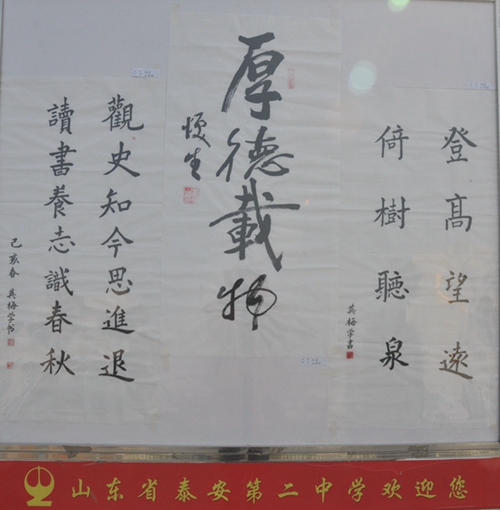 登高望遠
倚樹聽泉
英梅学書
厚德載物
觀史知今思進退
讀書養志識春秋
己亥春 英梅学书
山东省泰安第二中学欢迎您